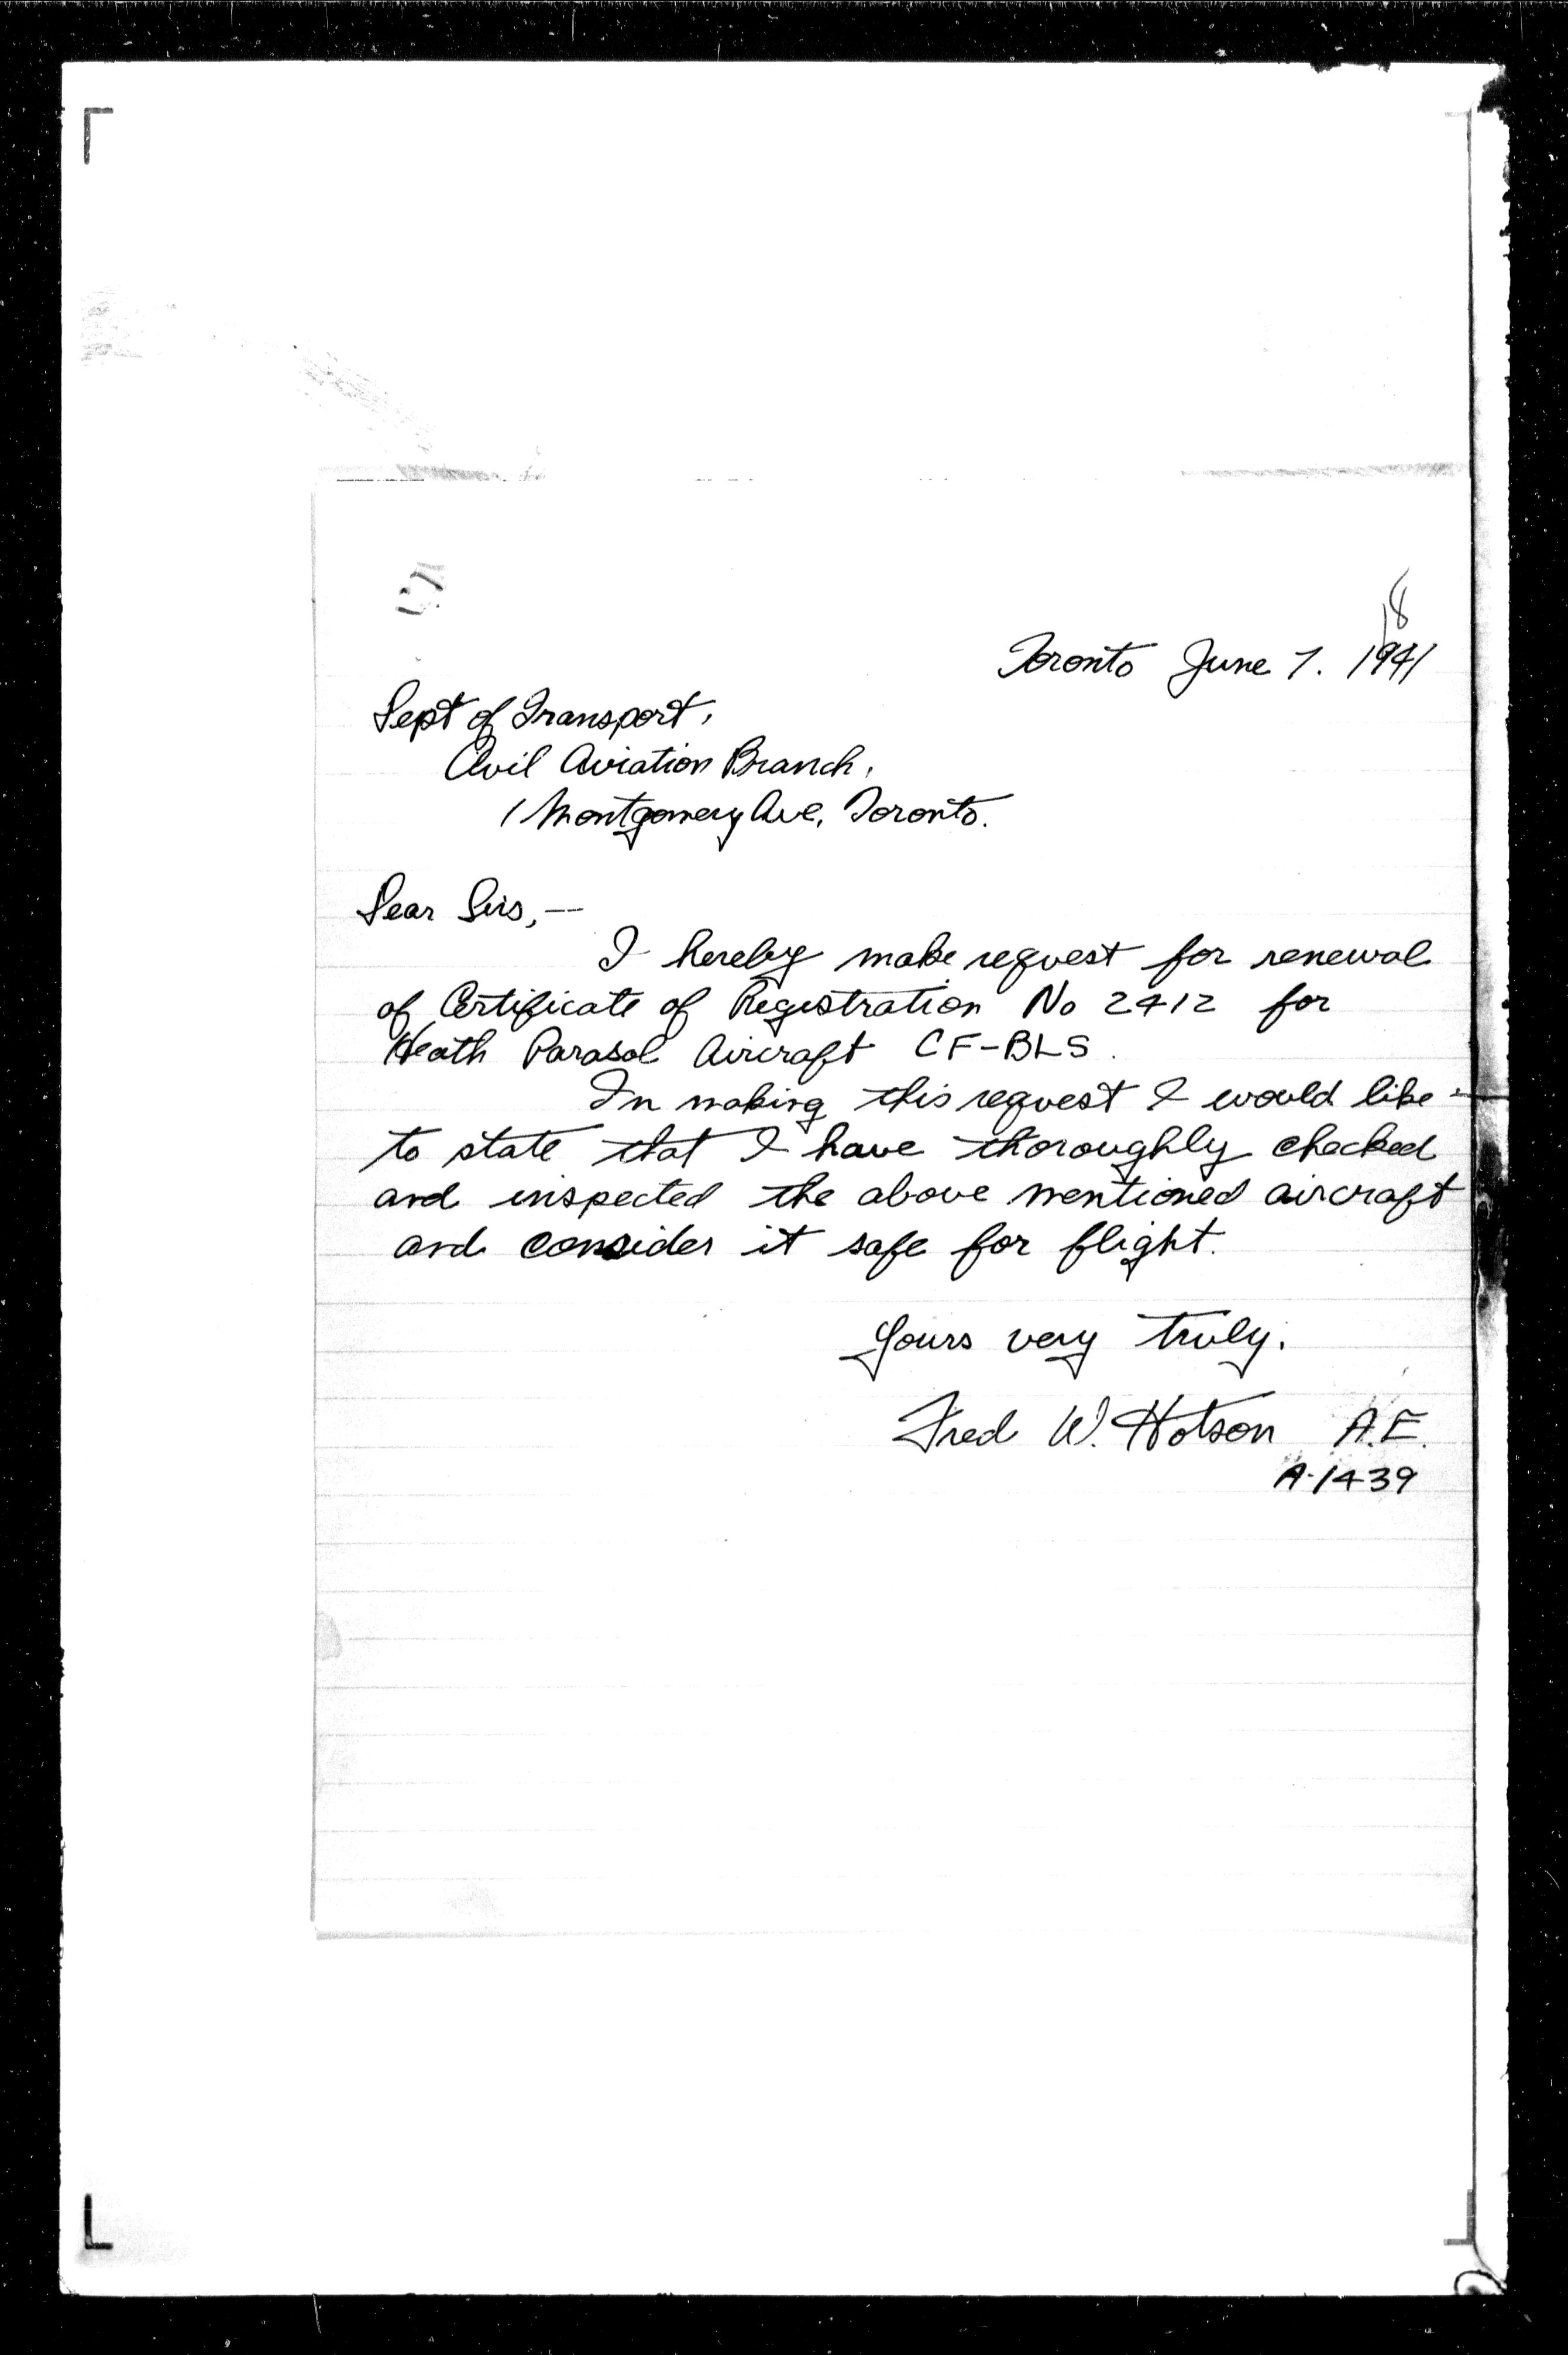 18
Toronto June 7. 1941
Dept of Transport,
Civil Aviation Branch,
1 Montgomery Ave, Toronto.
Dear Sirs,—
I hereby make request for renewal
of Certificate of Registration No 2412 for
Heath Parasol Aircraft CF-BLS.
In making this request I would like
to state that I have thoroughly checked
and inspected the above mentioned aircraft
and consider it safe for flight.
Yours very truly.
Fred W. Hotson A.E.
A-1439